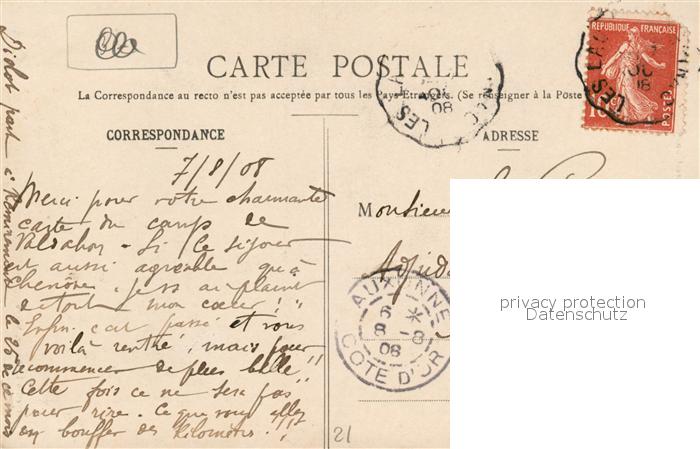 CARTE POSTALE
La Correspondance au recto n'est pas acceptée par tous les Pays Etrangers. (Se renseigner à la Poste
CORRESPONDANCE
ADRESSE
REPUBLIQUE FRANÇAISE
10
POSTES
LES LA
08
LES
08
7/8/08
Merci pour votre charmante
carte du camp de
Valdahon - Si le séjour
est aussi agréable qu'à
Chenôve, je vs au plaint
de tout mon cœur !!
Enfin c'est passé, et vous
voilà rentré, mais pour
recommencer de plus belle !!
Cette fois ce ne sera pas
pour rire. Ce que vous allez
en bouffer des kilomètres !!!
Didot part à Remiremont le 25 de ce mois
Monsieur
Adjud
AUXONNE
6 *
8 - 8
08
COTE D'OR
21
privacy protection
Datenschutz